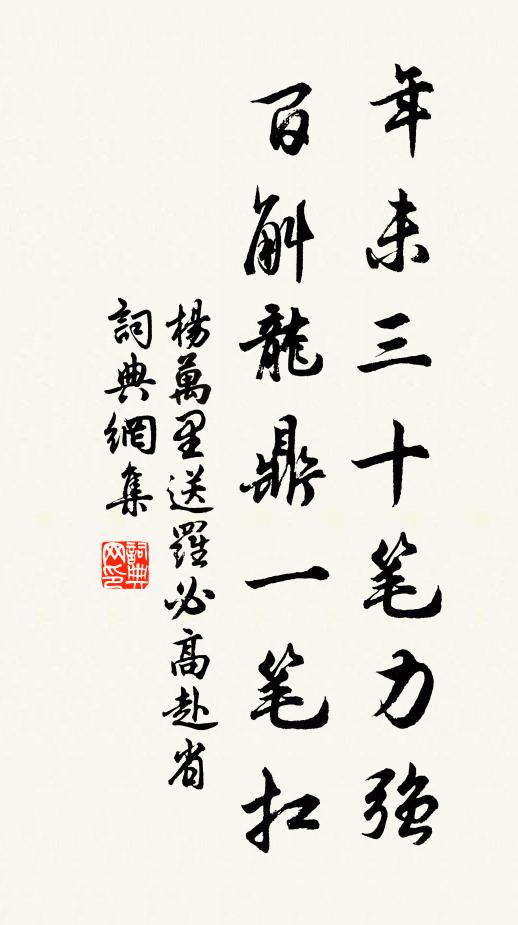 年未三十笔力強
百斛龍鼎一笔扛
楊萬里送羅必高赴省
詞典網集
詞典网印